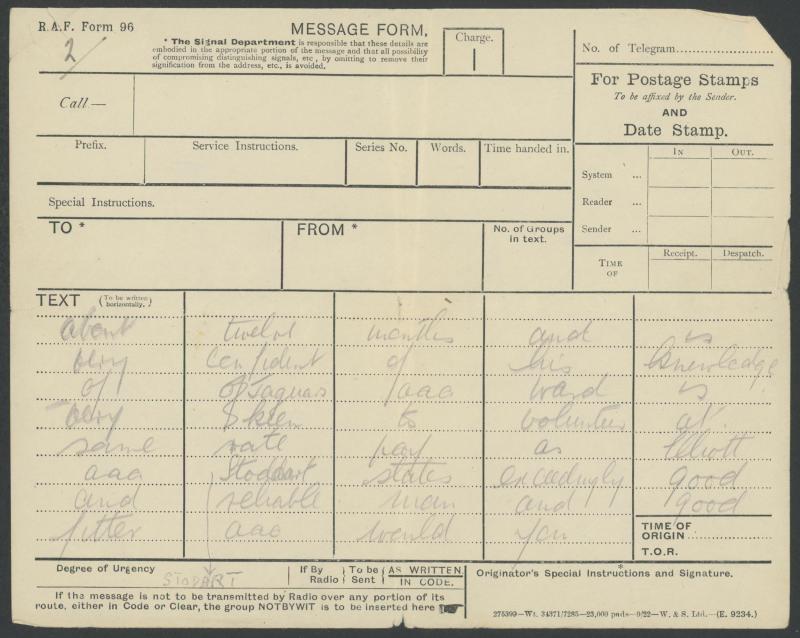 R.A.F. Form 96
MESSAGE FORM.
2/
* The Signal Department is responsible that these details are
embodied in the appropriate portion of the message and that all possibility
of compromising distinguishing signals, etc, by omitting to remove their
signification from the address, etc., is avoided.
Charge.
No. of Telegram
For Postage Stamps
To be affixed by the Sender.
AND
Date Stamp.
Call—
Prefix. Service Instructions. Series No. Words. Time handed in.
In Out.
System ...
Reader ...
Sender ...
Special Instructions.
TO * FROM * No. of Groups
in text.
Receipt. Despatch.
Time
of
TEXT (To be written horizontally.)
about twelve months and is
very confident of his knowledge
of of Jaguars aaa Ward is
very keen to volunteer at
same rate pay as Elliott
aaa Stoddart states exceedingly good
and reliable man and good
fitter aaa would you
TIME OF
ORIGIN
T.O.R.
Degree of Urgency STODART
If By
Radio
To be
Sent
AS WRITTEN
IN CODE.
Originator's Special Instructions and Signature.
If the message is not to be transmitted by Radio over any portion of its
route, either in Code or Clear, the group NOTBYWIT is to be inserted here
275399—Wt. 34371/7285—23,000 pads—9/22—W. & S. Ltd.—(E. 9234.)